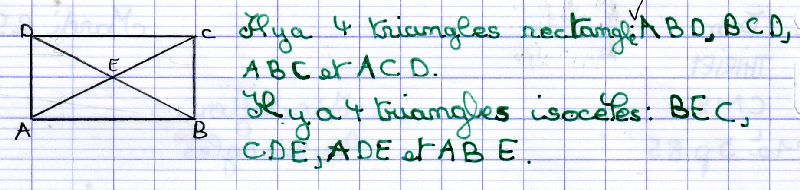 D
C
E
A
B
Il y a 4 triangles rectangle: ABD, BCD,
ABC et ACD.
Il y a 4 triangles isocèles: BEC,
CDE, ADE et ABE.